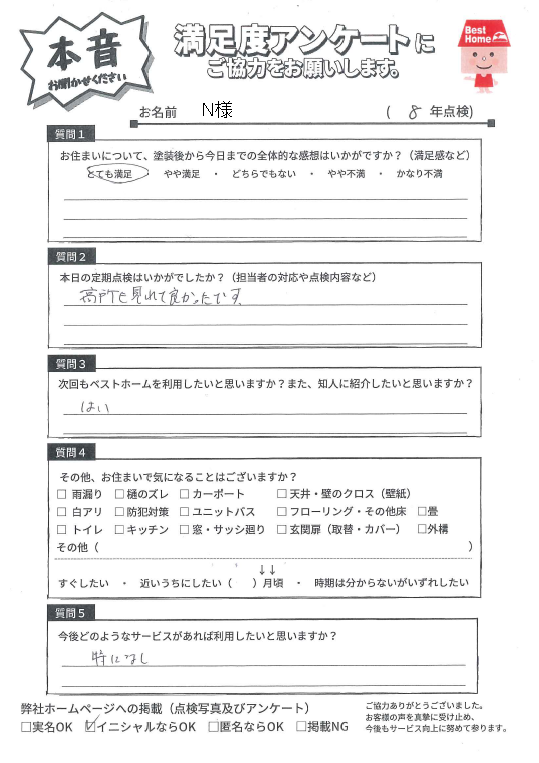 本音
お聞かせください
満足度アンケートに
ご協力をお願いします。
Best Home
お名前 N様 ( 8 年点検)
質問1
お住まいについて、塗装後から今日までの全体的な感想はいかがですか？（満足感など）
とても満足 ・ やや満足 ・ どちらでもない ・ やや不満 ・ かなり不満
質問2
本日の定期点検はいかがでしたか？（担当者の対応や点検内容など）
高所も見れて良かったです
質問3
次回もベストホームを利用したいと思いますか？また、知人に紹介したいと思いますか？
はい
質問4
その他、お住まいで気になることはございますか？
□ 雨漏り □ 樋のズレ □ カーポート □ 天井・壁のクロス（壁紙）
□ 白アリ □ 防犯対策 □ ユニットバス □ フローリング・その他床 □畳
□ トイレ □ キッチン □ 窓・サッシ廻り □ 玄関扉（取替・カバー） □外構
その他（ ）
↓↓
すぐしたい ・ 近いうちにしたい（ ）月頃 ・ 時期は分からないがいずれしたい
質問5
今後どのようなサービスがあれば利用したいと思いますか？
特になし
弊社ホームページへの掲載（点検写真及びアンケート）
□実名OK ☑イニシャルならOK □匿名ならOK □掲載NG
ご協力ありがとうございました。
お客様の声を真摯に受け止め、
今後もサービス向上に努めて参ります。